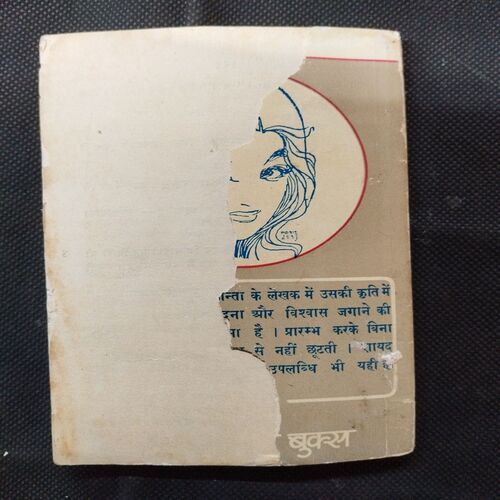 न्ता के लेखक में उसकी कृति में
दना और विश्वास जगाने की
ता है । प्रारम्भ करके बिना
से नहीं छूटती । शायद
उपलब्धि भी यही है
बुक्स